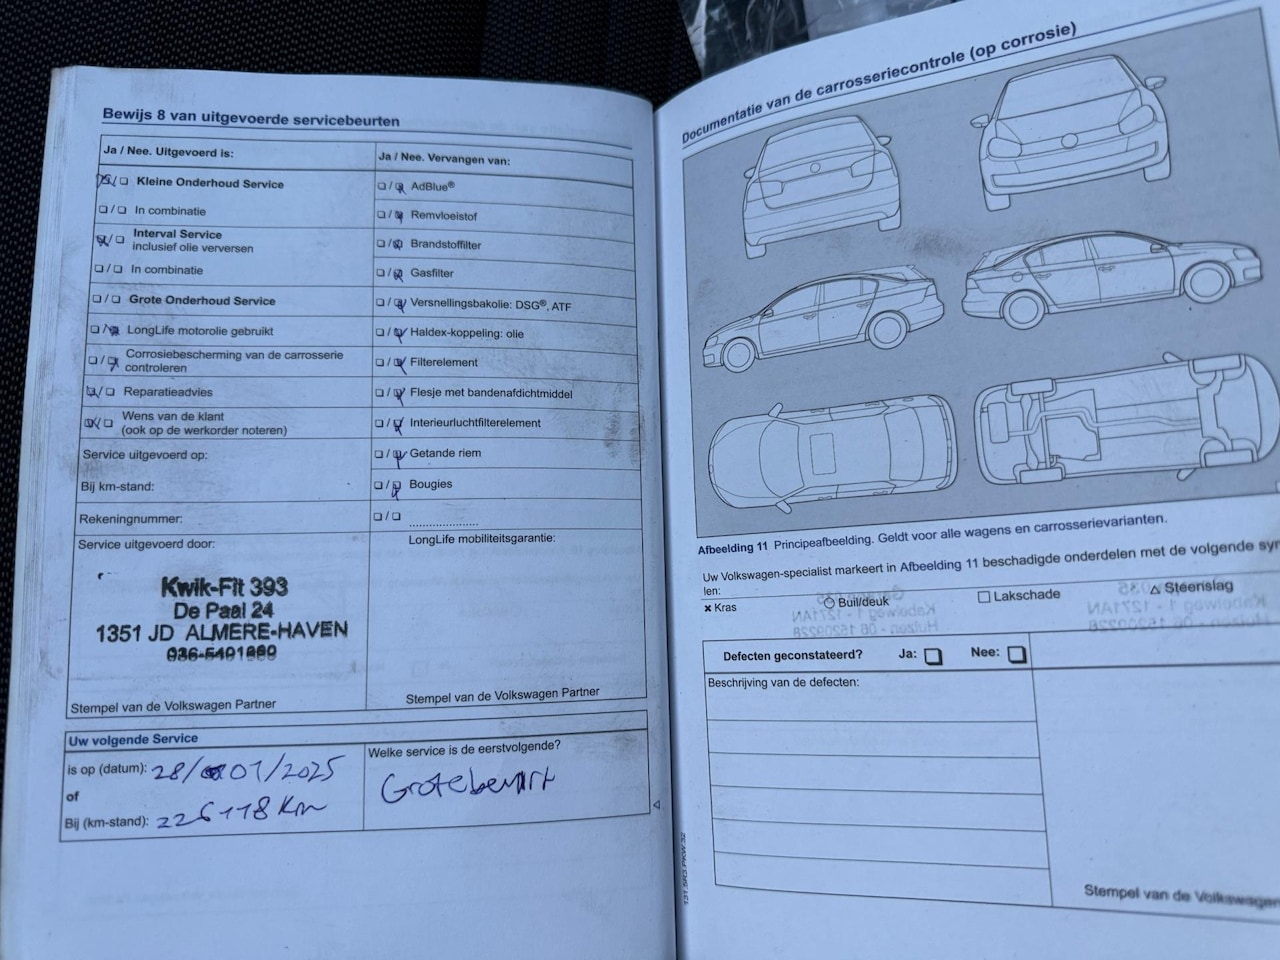 Bewijs 8 van uitgevoerde servicebeurten
Ja / Nee. Uitgevoerd is:
Kleine Onderhoud Service
In combinatie
Interval Service
inclusief olie verversen
In combinatie
Grote Onderhoud Service
LongLife motorolie gebruikt
Corrosiebescherming van de carrosserie
controleren
Reparatieadvies
Wens van de klant
(ook op de werkorder noteren)
Service uitgevoerd op:
Bij km-stand:
Rekeningnummer:
Service uitgevoerd door:
Kwik-Fit 393
De Paal 24
1351 JD ALMERE-HAVEN
Stempel van de Volkswagen Partner
Ja / Nee. Vervangen van:
AdBlue®
Remvloeistof
Brandstoffilter
Gasfilter
Versnellingsbakolie: DSG®, ATF
Haldex-koppeling: olie
Filterelement
Flesje met bandenafdichtmiddel
Interieurluchtfilterelement
Getande riem
Bougies
LongLife mobiliteitsgarantie:
Stempel van de Volkswagen Partner
Uw volgende Service
is op (datum): 28/01/2025
of
Bij (km-stand): 226118 Km
Welke service is de eerstvolgende?
Grotebeurt
Documentatie van de carrosseriecontrole (op corrosie)
Afbeelding 11 Principeafbeelding. Geldt voor alle wagens en carrosserievarianten.
Uw Volkswagen-specialist markeert in Afbeelding 11 beschadigde onderdelen met de volgende
len:
Kras
Buil/deuk
Lakschade
Steenslag
Defecten geconstateerd? Ja: Nee:
Beschrijving van de defecten:
Stempel van de Volkswagen